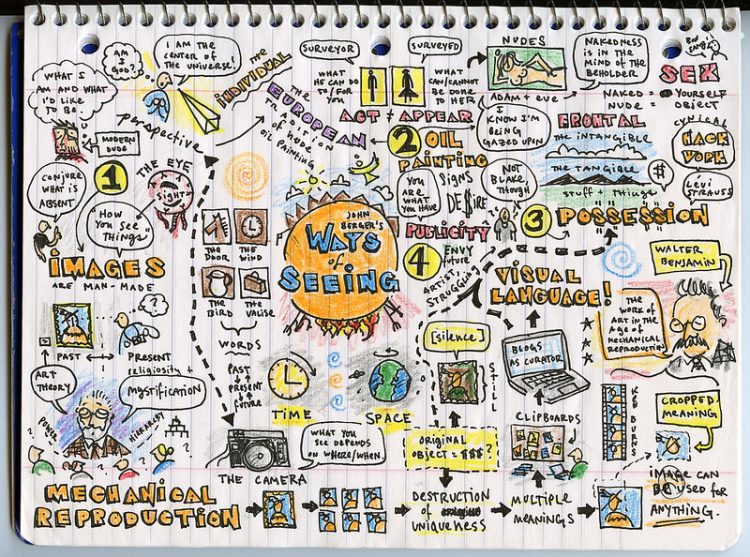 AM I GOD?
I AM THE
CENTER OF
THE UNIVERSE!
THE
INDIVIDUAL
SURVEYOR
SURVEYED
NUDES
NAKEDNESS
IS IN THE
MIND OF THE
BEHOLDER
SEX
WHAT I
AM AND WHAT
I'D LIKE TO
BE.
MODERN
DUDE
perspective
THE
EUROPEAN
TRADITION
OF NUDE
OIL PAINTING
WHAT
HE CAN DO
TO/FOR
YOU
WHAT
CAN/CANNOT
BE DONE
TO HER
ACT ≠ APPEAR
ADAM + EVE
I
KNOW I'M
BEING
GAZED UPON
NAKED = YOURSELF
NUDE = OBJECT
CYNICAL
HACK
WORK
LÉVI
STRAUSS
FRONTAL
THE INTANGIBLE
THE TANGIBLE
STUFF + THINGS
$
1
THE EYE
SIGHT
CONJURE
WHAT IS
ABSENT
"HOW
YOU SEE
THINGS"
IMAGES
ARE MAN-MADE
2 OIL
PAINTING
YOU
ARE
WHAT
YOU HAVE
SIGNS
DE$IRE
NOT
BLAKE,
THOUGH
3 POSSESSION
PUBLICITY
4
ENVY
FUTURE
ARTIST,
STRUGGLING
JOHN
BERGER'S
WAYS
of
SEEING
THE
DOOR
THE
WIND
THE
BIRD
THE
VALISE
WORDS
PAST
PRESENT
FUTURE
VISUAL
LANGUAGE!
WALTER
BENJAMIN
THE WORK OF
ART IN THE
AGE OF
MECHANICAL
REPRODUCTION
?
PAST
PRESENT
RELIGIOSITY +
MYSTIFICATION
ART
THEORY
POWER
HIERARCHY
TIME
SPACE
[silence]
STILL
BLOGS
AS CURATOR
CLIPBOARDS
KEN BURNS
CROPPED
MEANING
THE CAMERA
WHAT YOU
SEE DEPENDS
ON WHERE/WHEN.
ORIGINAL
OBJECT = $$$?
MECHANICAL
REPRODUCTION
DESTRUCTION
OF
UNIQUENESS
MULTIPLE
MEANINGS
IMAGE CAN
BE USED FOR
ANYTHING.